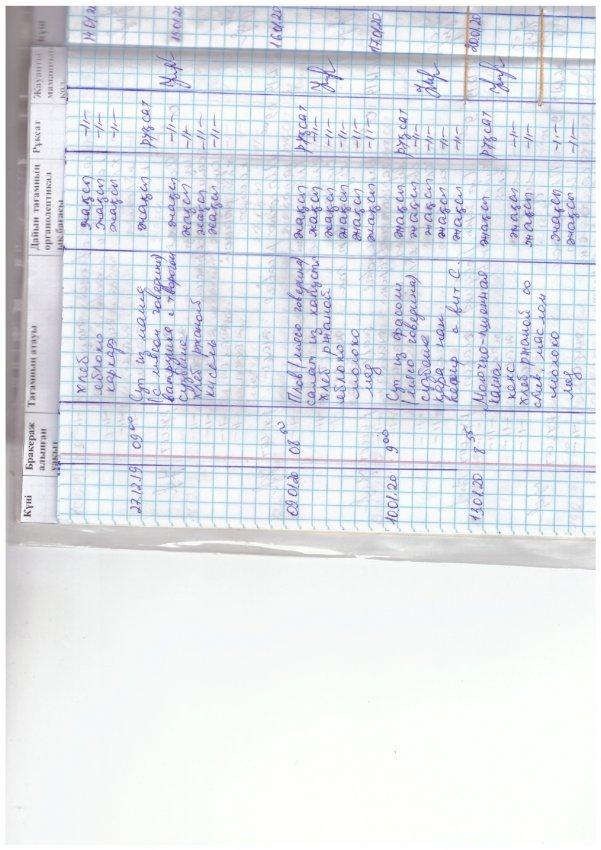 Күні
Бракераж алынған уақыт
Тағамның атауы
Дайын тағамның органолептикалық бағасы
Рұқсат
Жауапты маманның қолы
Күні
хлеб жақсы -//-
яблоко жақсы -//-
каркадэ жақсы -//-
27.12.19 09 00 Суп из машa жақсы рұқсат
(с мясом говядина)
ватрушка с творогом жақсы -//-
сузбеше жақсы -//-
хлеб ржаной жақсы -//-
кисель жақсы -//-
09.01.20 08 50 Плов (мясо говядина) жақсы рұқсат
салат из капусты жақсы -//-
хлеб ржаной жақсы -//-
яблоко жақсы -//-
молоко жақсы -//-
мед жақсы -//-
10.01.20 9 00 Суп из фасоли жақсы рұқсат
(мясо говядина) жақсы -//-
сузбеше жақсы -//-
қара нан жақсы -//-
с вит С. жақсы -//-
13.01.20 8 55 Молочно-пшенная жақсы рұқсат
каша
кекс жақсы -//-
хлеб ржаной со жақсы -//-
слив. маслом
молоко жақсы -//-
мед жақсы -//-
14.01.20
15.01.20
16.01.20
17.01.20
20.01.20